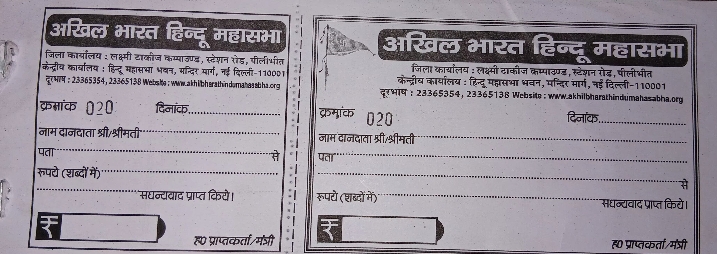 अखिल भारत हिन्दू महासभा
जिला कार्यालय : लक्ष्मी टाकीज कम्पाउण्ड, स्टेशन रोड, पीलीभीत
केन्द्रीय कार्यालय : हिन्दू महासभा भवन, मन्दिर मार्ग, नई दिल्ली-110001
दूरभाष : 23365354, 23365138 Website : www.akhilbharathindumahasabha.org
क्रमांक 020 दिनांक
नाम दानदाता श्री/श्रीमती
पता से
रूपये (शब्दों में)
सधन्यवाद प्राप्त किये।
₹
ह0 प्राप्तकर्ता/मंत्री
अखिल भारत हिन्दू महासभा
जिला कार्यालय : लक्ष्मी टाकीज कम्पाउण्ड, स्टेशन रोड, पीलीभीत
केन्द्रीय कार्यालय : हिन्दू महासभा भवन, मन्दिर मार्ग, नई दिल्ली-110001
दूरभाष : 23365354, 23365138 Website : www.akhilbharathindumahasabha.org
क्रमांक 020 दिनांक
नाम दानदाता श्री/श्रीमती
पता
से
रूपये (शब्दों में) सधन्यवाद प्राप्त किये।
₹
ह0 प्राप्तकर्ता/मंत्री